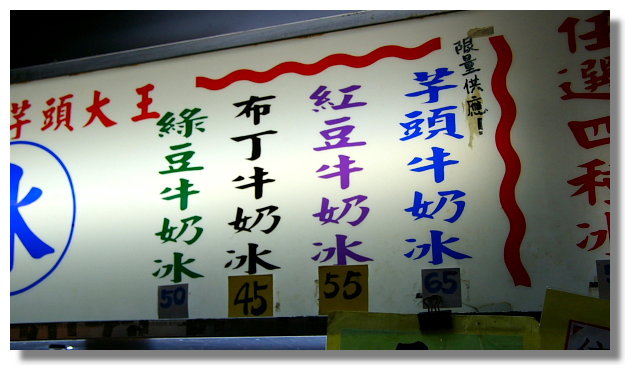 芋頭大王
冰
綠豆牛奶冰
50
布丁牛奶冰
45
紅豆牛奶冰
55
芋頭牛奶冰
65
限量供應!
任選四種冰